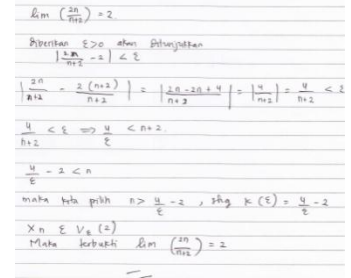 lim (2n/n+2) = 2.
Diberikan ε>0 akan Ditunjukkan
|2n/n+2 - 2| < ε
|2n/n+2 - 2(n+2)/n+2| = |2n-2n+4/n+2| = |4/n+2| = 4/n+2 < ε
4/n+2 < ε ⇒ 4/ε < n+2.
4/ε - 2 < n
maka kita pilih n > 4/ε - 2, shg K(ε) = 4/ε - 2
Xn ε Vε(2)
Maka terbukti lim (2n/n+2) = 2